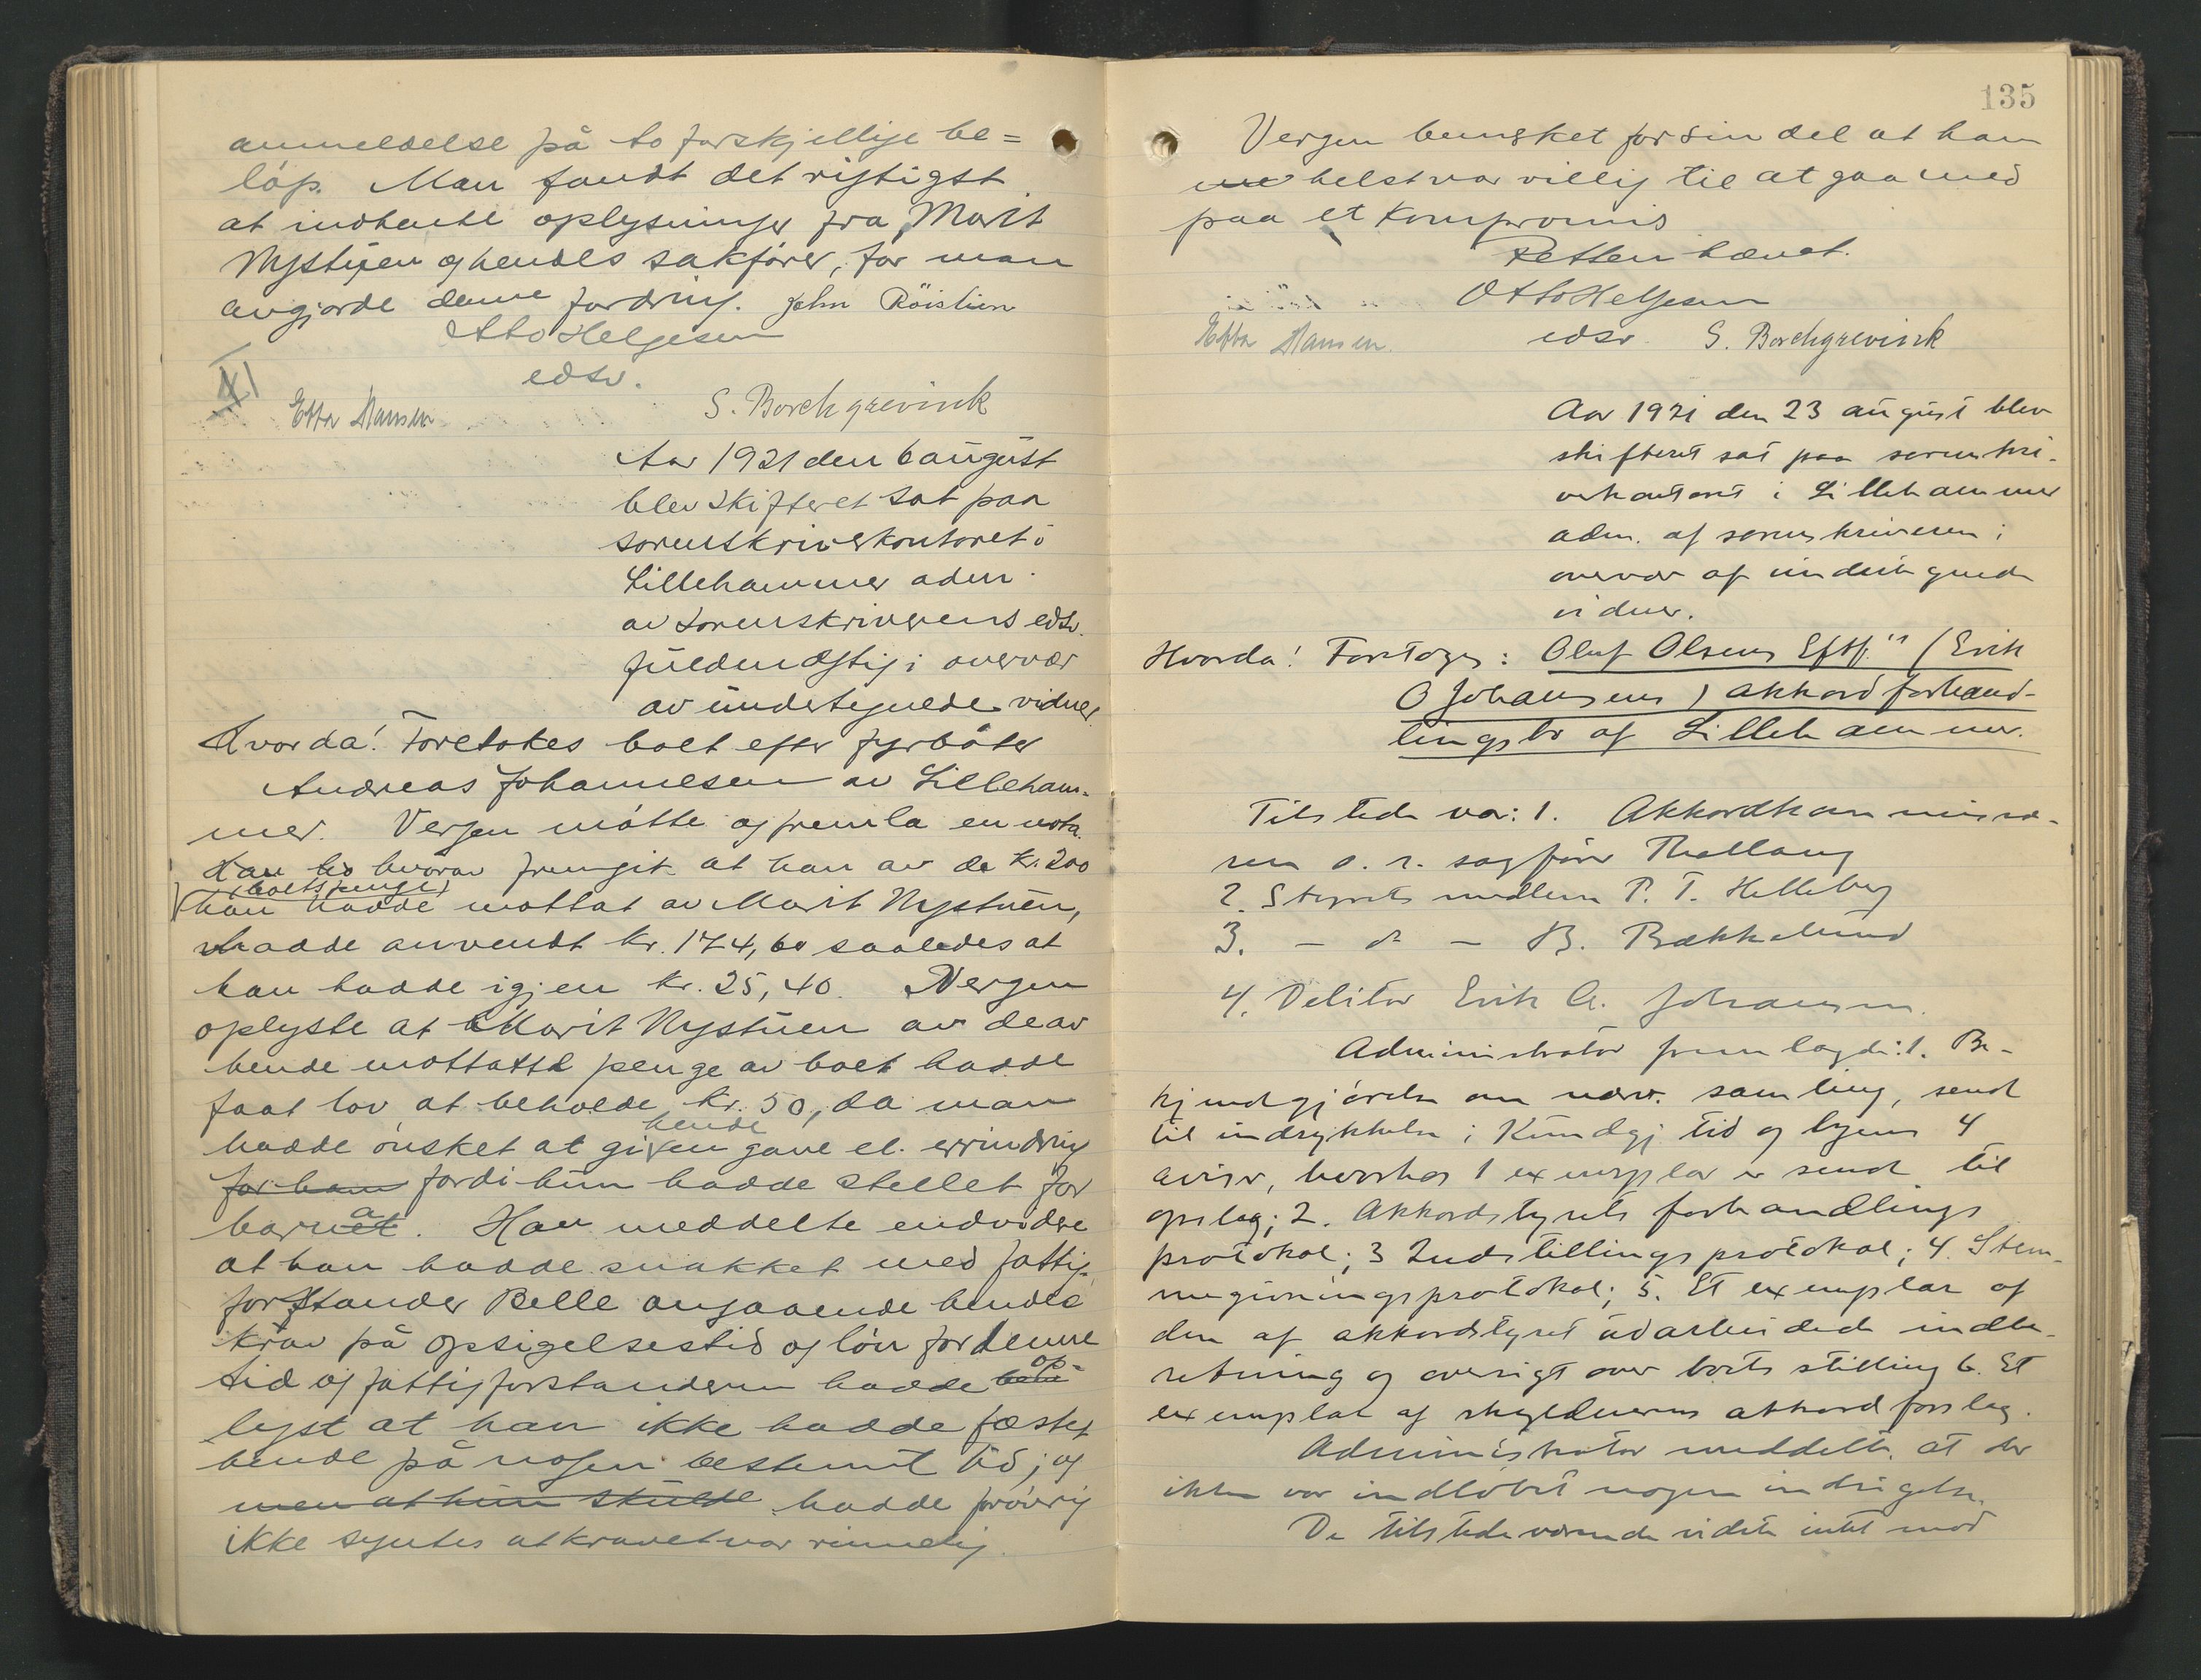 anmeldelse på to forskjellige be=
løp. Man fandt det rigtigst
at indhente oplysninger fra Marit
Nystuen og hendes sakfører, før man
avgjorde denne fordring. John Röislien
Otto Helgesen
edsv.
XI
Ebba Hansen
S. Borchgrevink
Aar 1921 den 6 august
blev skifteret sat paa
sorenskriverkontoret i
Lillehammer adm.
av sorenskriverens edsv.
fuldmægtig i overvær
av undertegnede vidner
Hvorda! Foretokes boet efter fyrbøter
Andreas Johannesen av Lilleham-
mer. Vergen møtte og fremla en nota.
hvorav fremgik at han av de kr. 200
(boets penge)
han hadde mottat av Marit Nystuen,
hadde anvendt kr. 174,60 saaledes at
han hadde igjen kr. 25,40. Vergen
oplyste at Marit Nystuen av de av
hende mottatte penge av boet hadde
faat lov at beholde kr. 50, da man
hende
hadde ønsket at gi en gave el. erindring
for ham fordi hun hadde stellet for
barna. Han meddelte endvidere
at han hadde snakket med fattig-
forstander Belle angaaende hendes
krav på opsigelsestid og løn for denne
tid og fattigforstanderen hadde op=
lyst at han ikke hadde fæstet
hende på nogen bestemt tid; og
men at hun skulde hadde forøvrig
ikke syntes at kravet var rimelig.
135
Vergen bemerket for sin del at han
helst var villig til at gaa med
paa et kompromis
Retten hævet.
Otto Helgesen
Ebba Hansen.
edsv. S. Borchgrevink
Aar 1921 den 23 august blev
skifteret sat paa sorenskri-
verkontoret i Lillehammer
adm. af sorenskriveren i
overvær af undertegnede
vidner.
Hvorda! Foretoges: Oluf Olsens Eftf." (Erik
O Johansens) akkordforhand-
lingsbo af Lillehammer.
Tilstede var: 1. Akkordkommissæ-
ren o. r. sagfører Thallaug
2. Styrets medlem P. T. Helleberg
3. - d - B. Bækkelund
4. Debitor Erik O. Johansen.
Administrator fremlagde: 1. Be-
kjendtgjørelse om nærv. samling, sendt
til indrykkelse i Kundgj tid og byens 4
aviser, hvorhos 1 exemplar er sendt til
opslag; 2. Akkordstyrets forhandlings
protokol; 3 Indstillingsprotokol; 4. Stem-
megivningsprotokol; 5. Et exemplar af
den af akkordstyret udarbeidede indbe-
retning og oversigt over boets stilling 6. Et
exemplar af skyldnerens akkordforslag.
Administrator meddelte, at der
ikke var indløbet nogen indsigelse.
De tilstedeværende vidste intet mod